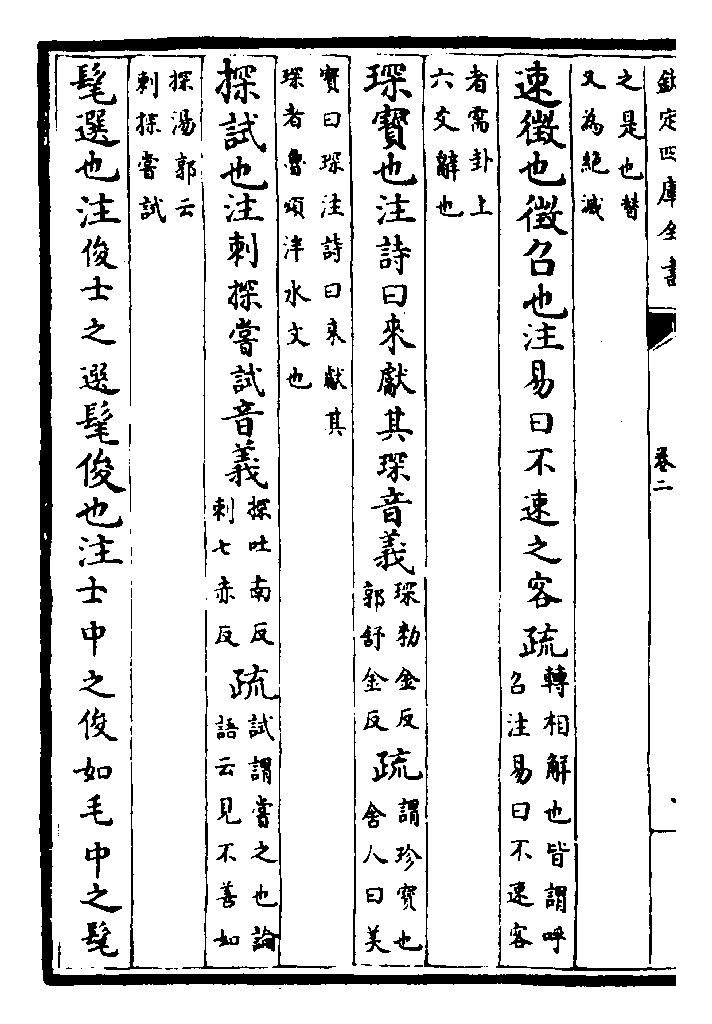 欽定四庫全書
卷二
之是也替
又為絕滅
速徵也徵召也注易曰不速之客疏轉相解也皆謂呼
召注易曰不速客
者需卦上
六爻辭也
琛寶也注詩曰來獻其琛音義琛勑金反
郭舒金反
疏謂珍寶也
舍人曰美
寶曰琛注詩曰來獻其
琛者魯頌泮水文也
探試也注刺探嘗試音義探吐南反
刺七亦反
疏試謂嘗之也論
語云見不善如
探湯郭云
刺探嘗試
髦選也注俊士之選髦俊也注士中之俊如毛中之髦